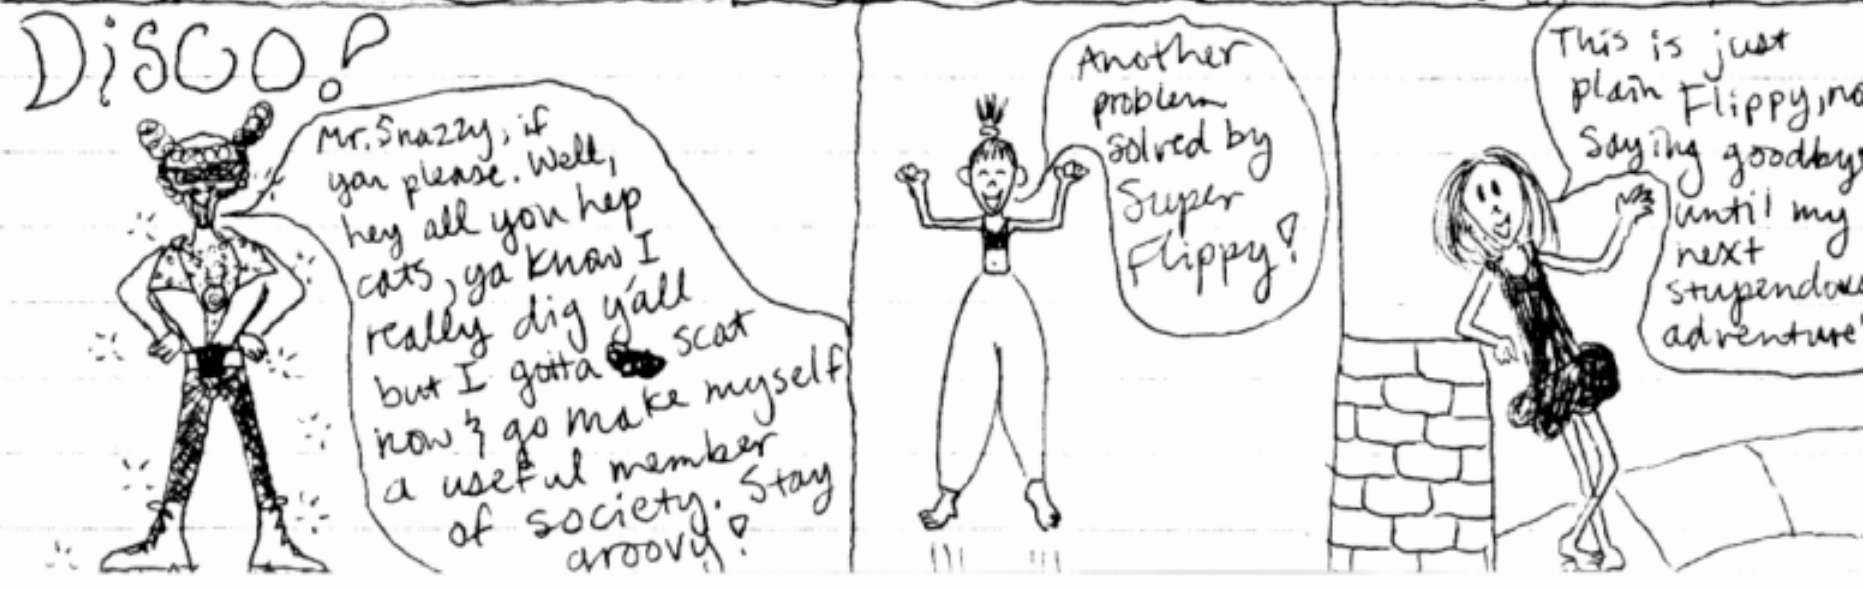 DISCO!
Mr. Snazzy, if
you please. Well,
hey all you hep
cats, ya know I
really dig y'all
but I gotta scat
now & go make myself
a useful member
of society. Stay
groovy!
Another
problem
solved by
Super
Flippy!
This is just
plain Flippy, no
saying goodbye
until my
next
stupendous
adventure!